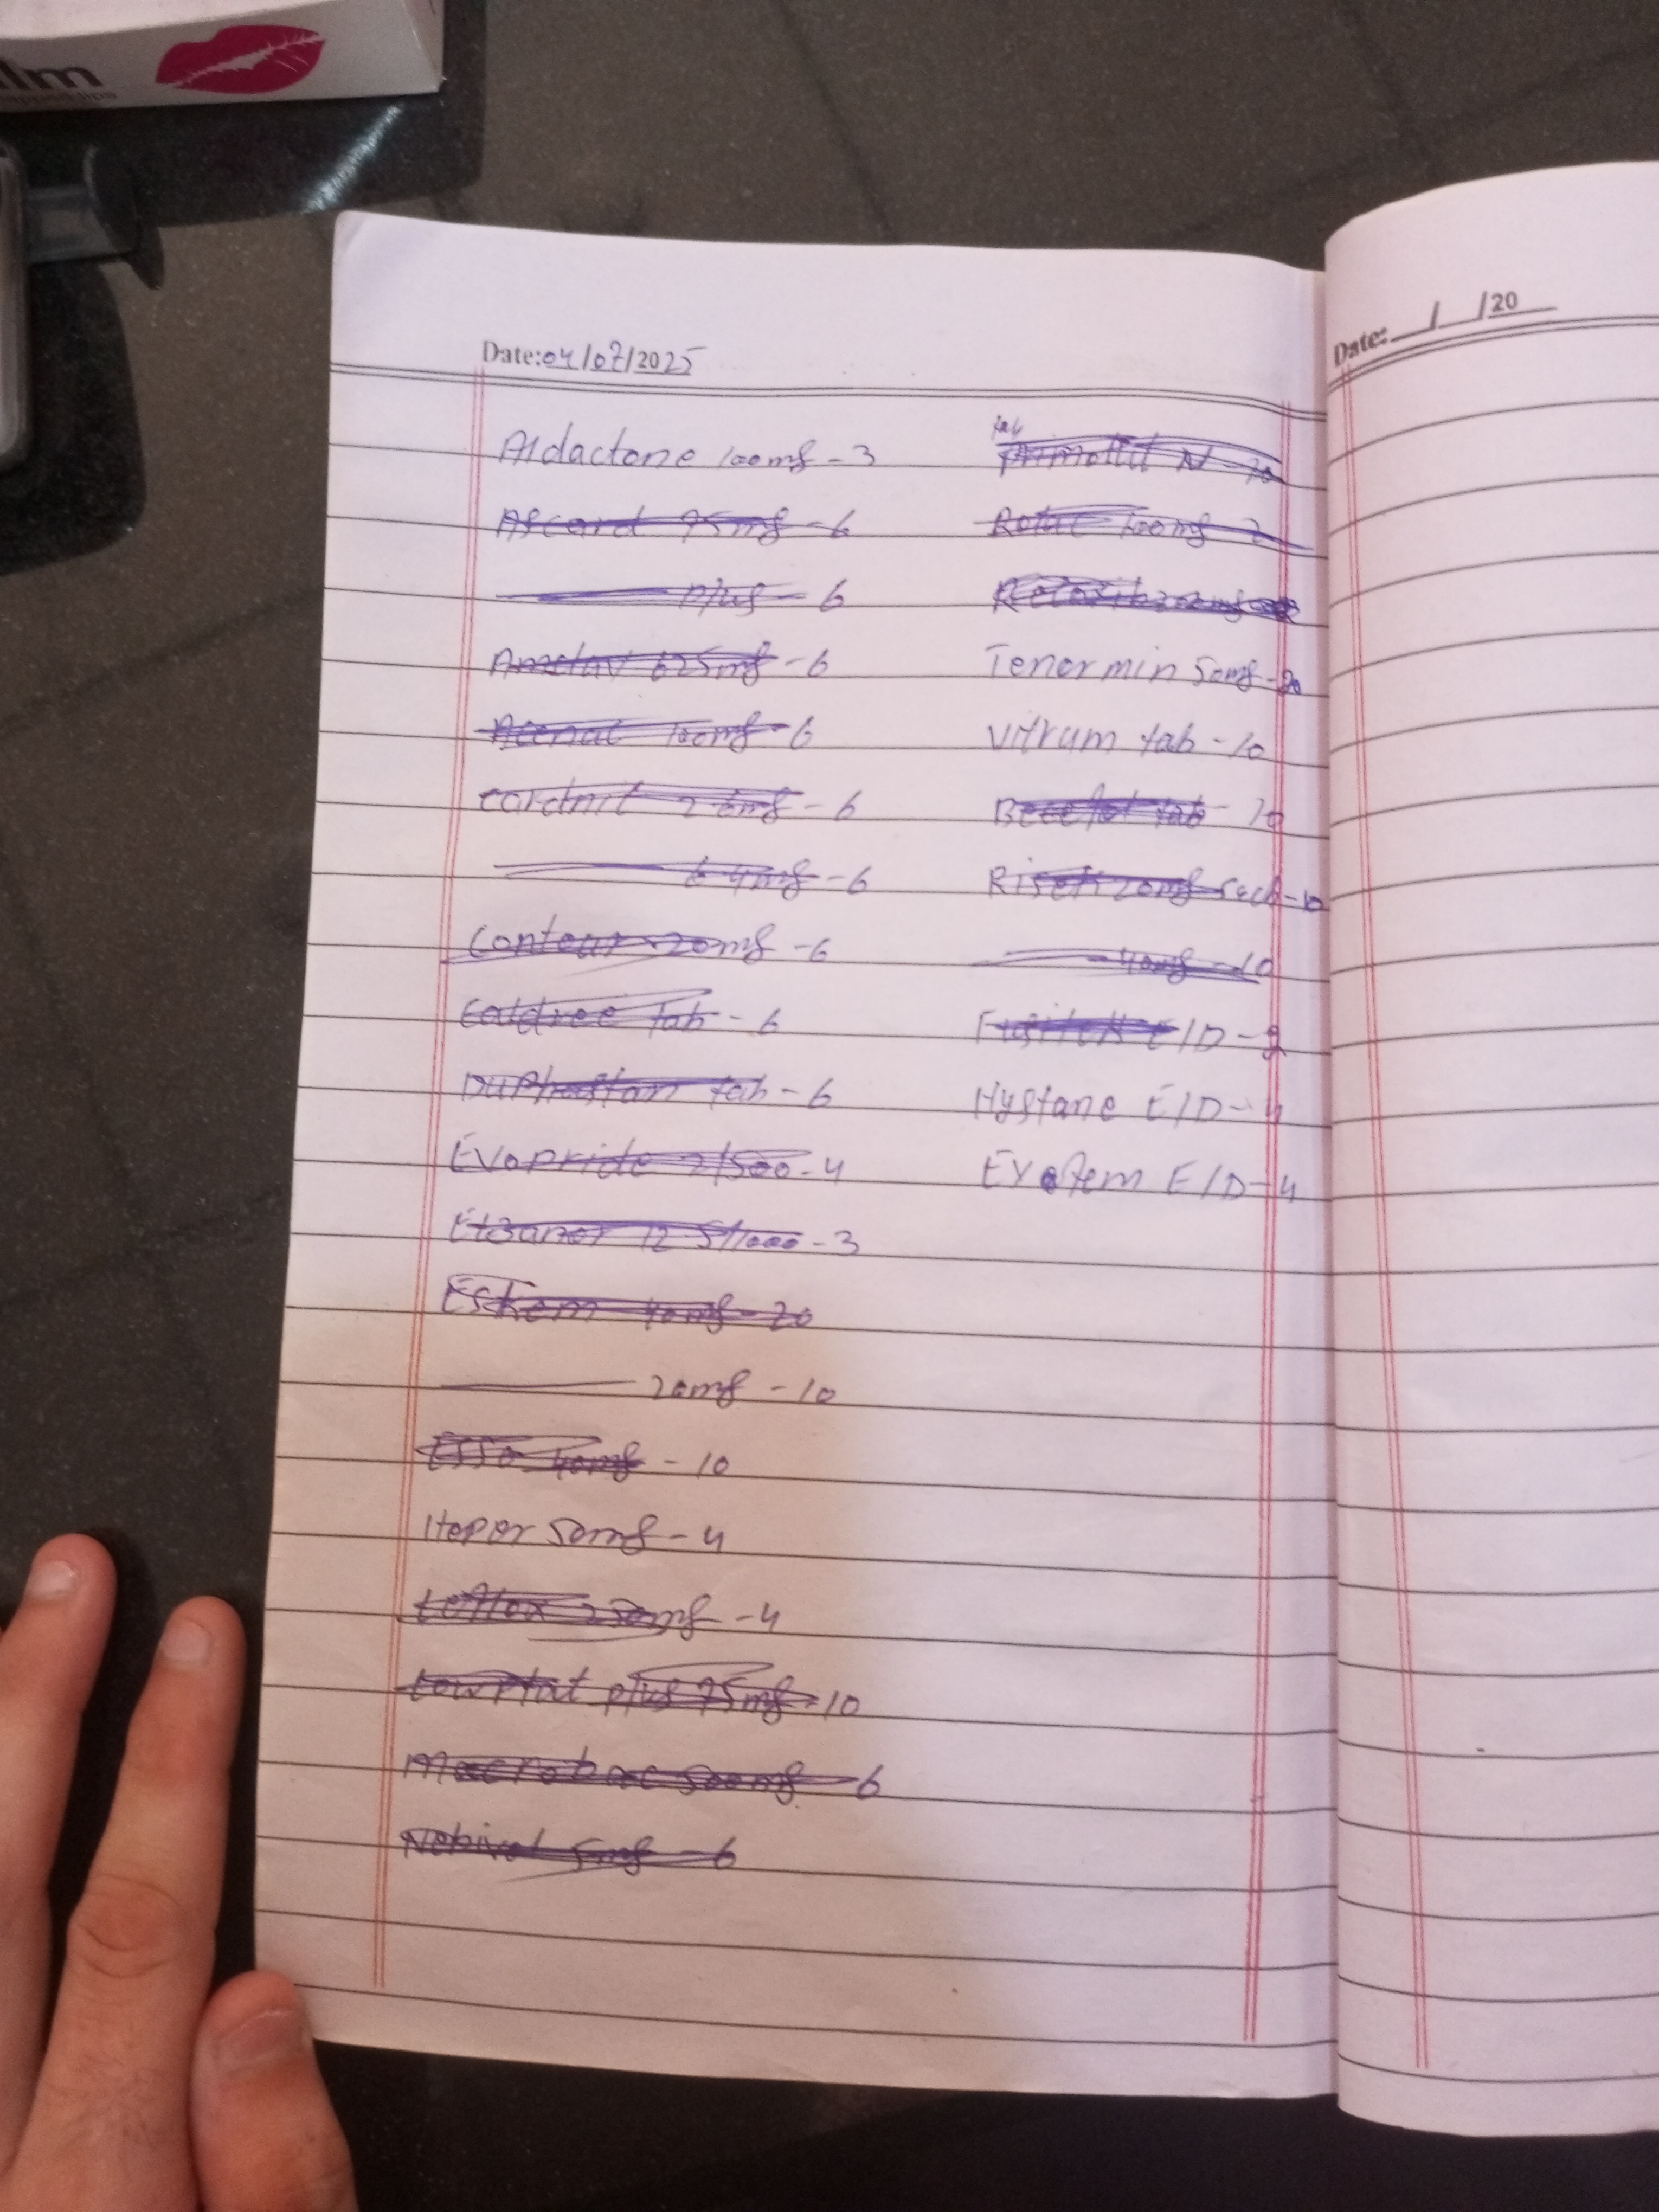 lm
Date: 04/07/2025
Aldactone 100mg - 3
Ascard 75mg - 6
plus - 6
Amclav 625mg - 6
100mg - 6
Cardnit 2.6mg - 6
6.4mg - 6
20mg - 6
Caldree Tab - 6
Duphaston tab - 6
Evopride 2/500 - 4
12.5/1000 - 3
Eskem 40mg - 20
20mg - 10
Esso 40mg - 10
Hepor 50mg - 4
Leflox 250mg - 4
Lowplat plus 75mg - 10
Macrobac 500mg - 6
Nebival 5mg - 6
tab
N
100mg - 2
Tenormin 50mg - 20
Vitrum tab - 10
tab - 10
Risek 20mg Sach - 10
40mg - 10
E/D
Hystane E/D - 4
E/D - 4
Date: / /20